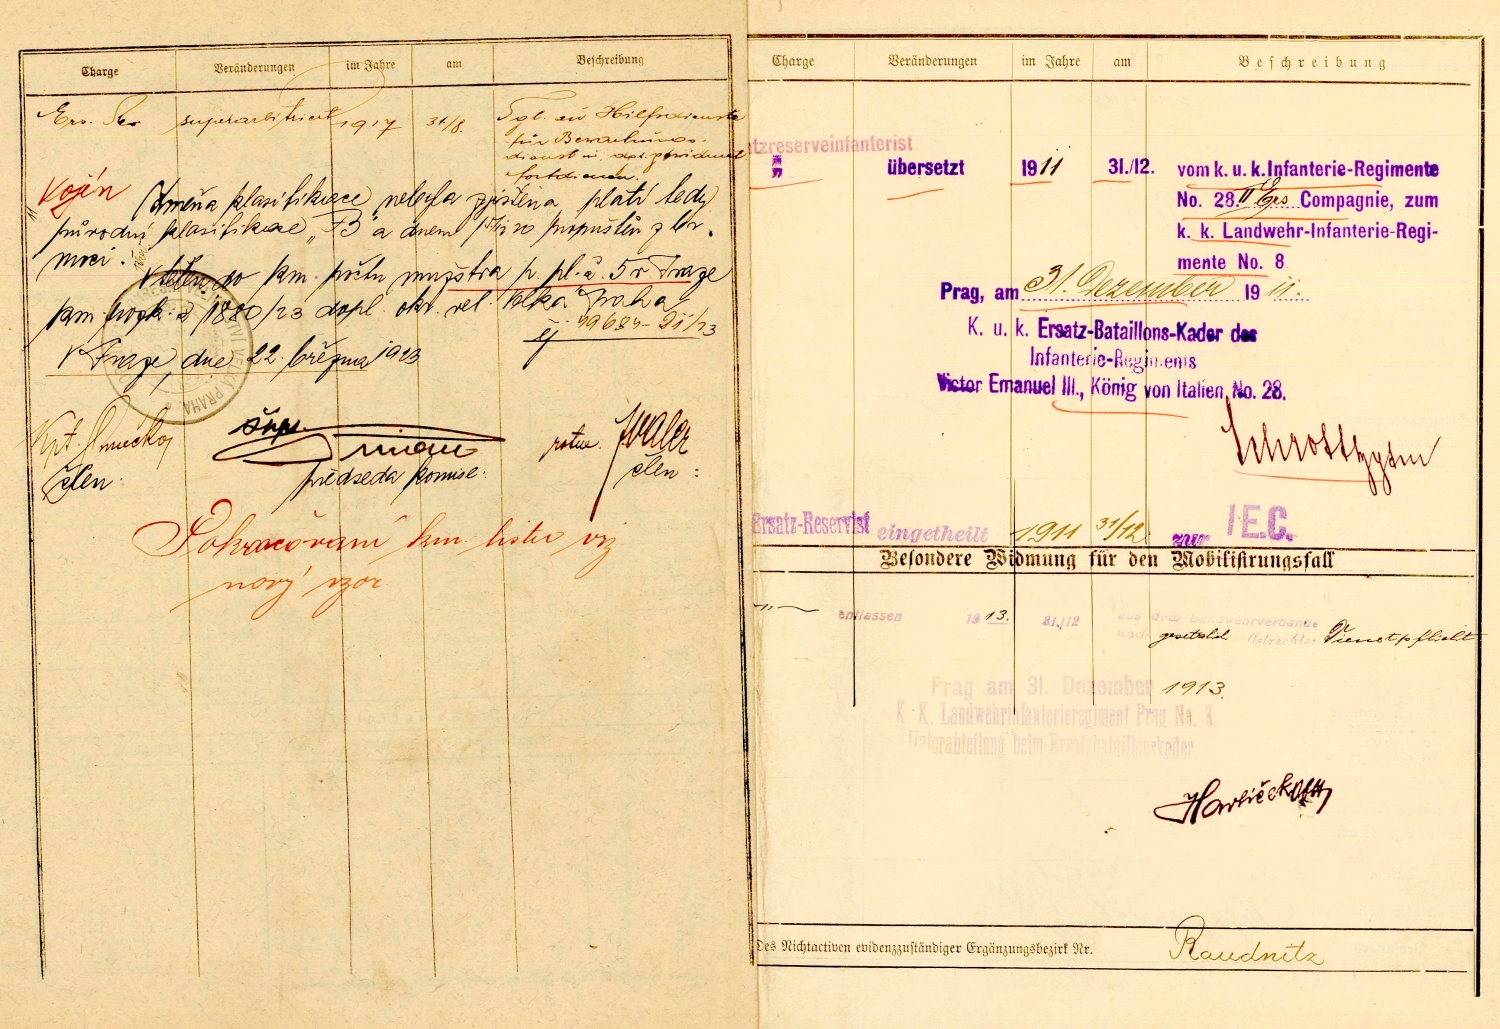 Charge Veränderungen im Jahre am Beschreibung
Ers. Res superarbitriert 1917 31/8. Tgl. zu Hilfsdienste
für Bewachungs-
dienst u.
fortdienen.
Vojín Změna klasifikace nebyla zjištěna platí tedy
původní klasifikace „B" a dnem propuštěn z
moci.
Vtělen do km. počtu mužstva p. pl. č. 5 v Praze
km. č 1880/23 dopl. okr. vel. Velká Praha
čj 49684-21/23
V Praze, dne 22. března 1923
šкp.
člen: předseda komise: rotm. člen:
Pokračování km. listu viz
nový vzor
Charge Veränderungen im Jahre am Beschreibung
tzreserveinfanterist
übersetzt 1911 31./12. vom k. u. k. Infanterie-Regimente
No. 28. II Ers Compagnie, zum
k. k. Landwehr-Infanterie-Regi-
mente No. 8
Prag, am 31. Dezember 1911.
K. u. k. Ersatz-Bataillons-Kader des
Infanterie-Regiments
Victor Emanuel III., König von Italien, No. 28.
Ersatz-Reservist eingetheilt 1911 31/12 zur IE.C.
Besondere Widmung für den Mobilisirungsfall
—"— entlassen 1913. 31./12 aus dem Landwehrverbande
nach gesetzlich vollstreckter Dienstpflicht
Prag am 31. Dezember 1913.
K. K. Landwehrinfanterieregiment Prag No. 8.
Unterabteilung beim Ersatzbataillonskader
Des Nichtactiven evidenzzuständiger Ergänzungsbezirk Nr. Raudnitz